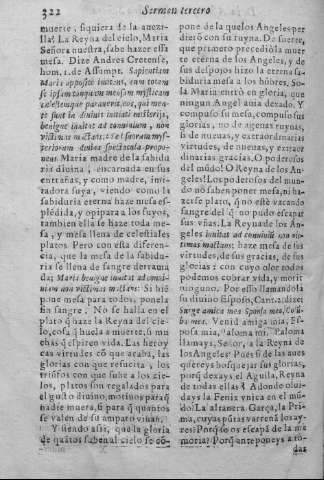 322 Sermon tercero
muerte, siquiera de la auezi-
lla? La Reyna del cielo, Maria
Señora nuestra, sabe hazer essa
mesa. Dize Andres Cretense,
hom. 1. de Assumpt. Sapientiam
Maria apposite inuenit, eam totam
se ipsam tanquam mensam mysticam
cælestemque parauerit, eos, qui men-
te sunt in diuinis initiati misterijs,
benigne inuitet ad conuiuium, non
victimas mactans:
Maria madre de la sabidu
ria diuina, encarnada en sus
entrañas, y como madre, imi-
tadora suya, viendo como la
sabiduria eterna haze mesa es-
plédida, y opipara a los suyos,
tambien ella se haze toda me-
sa, y mesa llena de celestiales
platos Pero con esta diferen-
cia, que la mesa de la sabidu-
ria se llena de sangre derrama
da; Maria benigne inuitat ad conui-
uium non victimas mactans: Si bié
pone mesa para todos, ponela
sin sangre. No se halla en el
plato q̃ haze la Reyna del cie-
lo, cosa q̃ huela a muerte, si mu
chas q̃ espiren vida. Las heroy
cas virtudes cõ que acaba, las
glorias con que resucita, los
triũfos con que sube a los cie-
los, platos son regalados para
el gusto diuino, motiuos para q̃
nadie muera, si para q̃ quantos
se valen de su amparo viuan.
Y siendo assi, que la gloria
de quãtos saben al cielo se cõ-
pone de la que los Angeles per
dieró con su ruyna. De suerte,
que primero precedió la muer
te eterna de los Angeles, y de
sus despojos hizo la eterna sa-
biduria mesa a los hóbres. So-
la Maria entró en gloria, que
ningun Angel auia dexado. Y
compuso su mesa, compuso sus
glorias, no de agenas ruynas,
si de nueuas, y extraordinarias
virtudes, de nueuas, y extraor
dinarias gracias. O poderosos
del múdo! O Reyna de los An-
geles! Los poderosos del mun-
do no saben poner mesa, ni ha-
zerse plato, q̃ no esté vacando
sangre del q̃ no pudo escapar
sus vñas. La Reyna de los An-
geles inuitat ad conuiuium non vic-
timas mactans: haze mesa de sus
virtudes, de sus gracias, de sus
glorias: con cuyo olor todos
podemos cobrar vida, y morir
ninguno. Por esso llamandola
su diuino Esposo, Cant. 2. dize:
Surge amica mea Sponsa mea, Colũ-
ba mea. Venid amiga mia, Es-
posa mia, Paloma mia. Paloma
llamays, Señor, a la Reyna de
los Angeles? Pues si de las aues
quereys bosquejar sus glorias,
porq̃ dexays el Aguila, Reyna
de todas ellas? A donde olui-
days la Fenix vnica en el mũ-
do? La altanera Garça, la Pri-
ma, cuyas pũtas varren à los ay-
res? Porq̃ se os escapã de la me
moria? Porq̃ anteponeys a to-
das